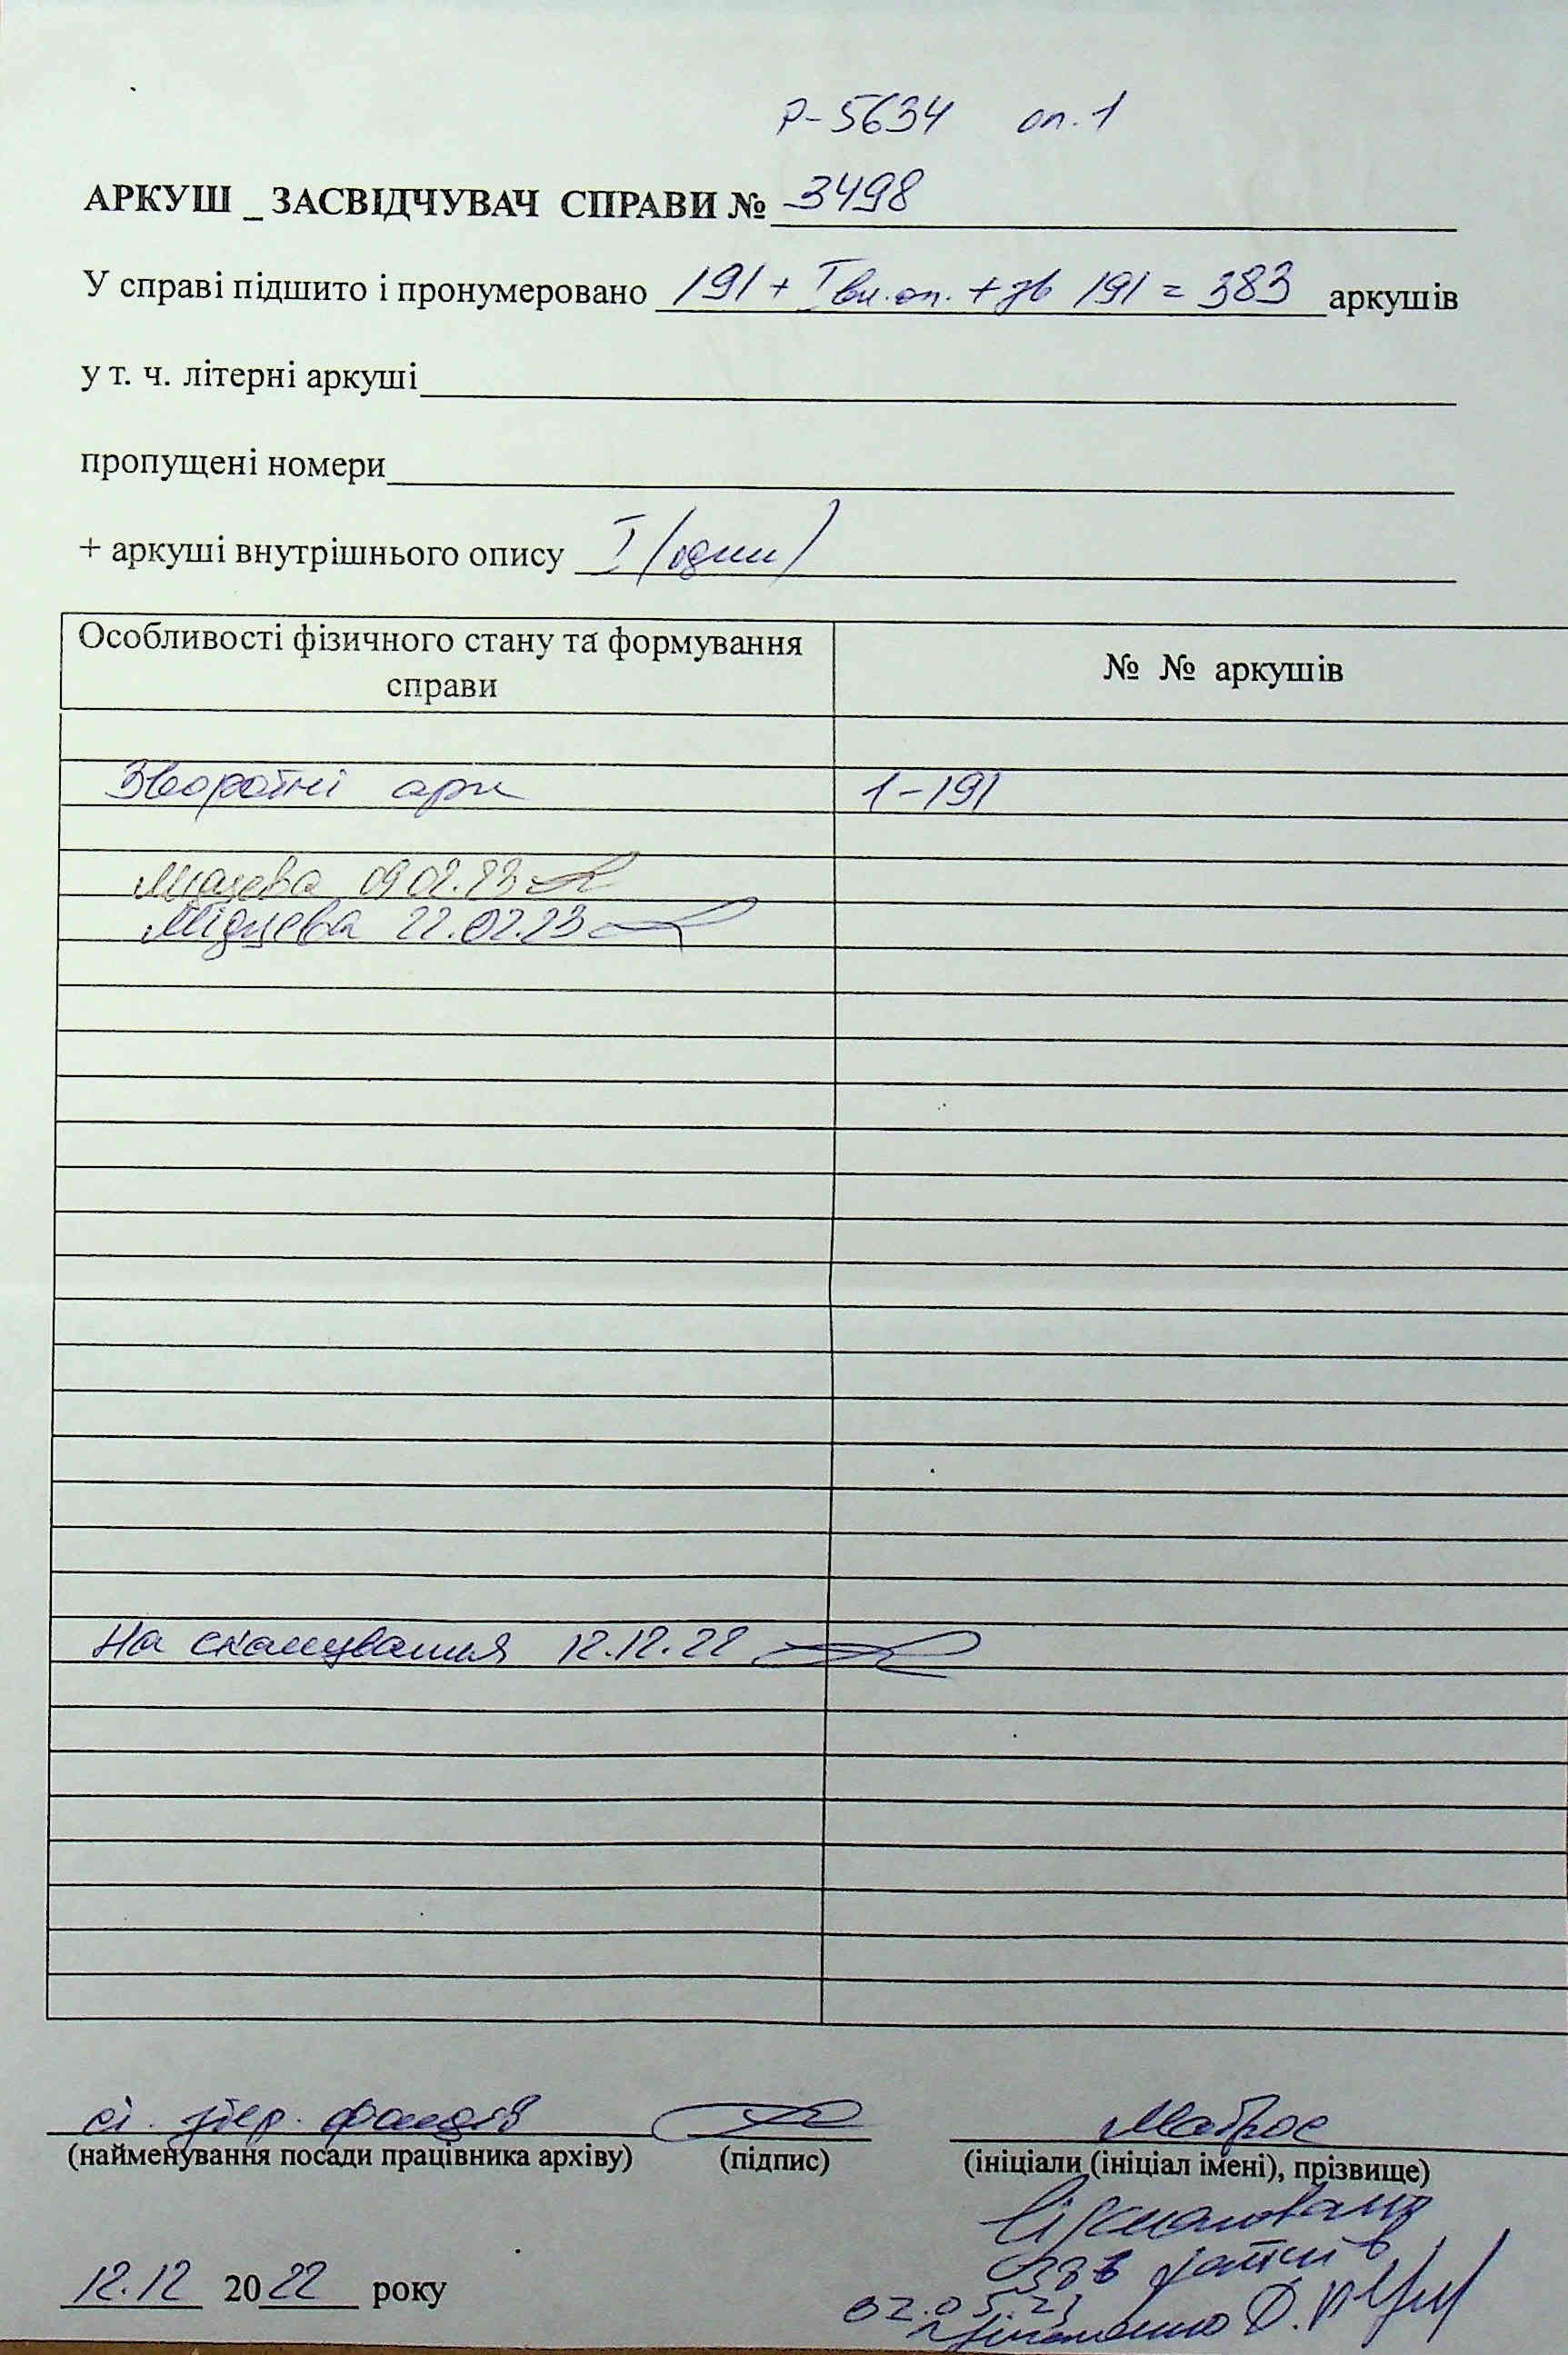 Р-5634 оп. 1
АРКУШ _ ЗАСВІДЧУВАЧ СПРАВИ № 3498
У справі підшито і пронумеровано 191 + I вн. оп. + зв 191 = 383 аркушів
у т. ч. літерні аркуші
пропущені номери
+ аркуші внутрішнього опису I (один)
Особливості фізичного стану та формування
справи
№ № аркушів
Зворотні арк 1-191
09.02.23
22.02.23
На сканування 12.12.22
збер. фондів Матрос
(найменування посади працівника архіву) (підпис) (ініціали (ініціал імені), прізвище)
Відскановано
файлів
12.12 2022 року
02.05.23